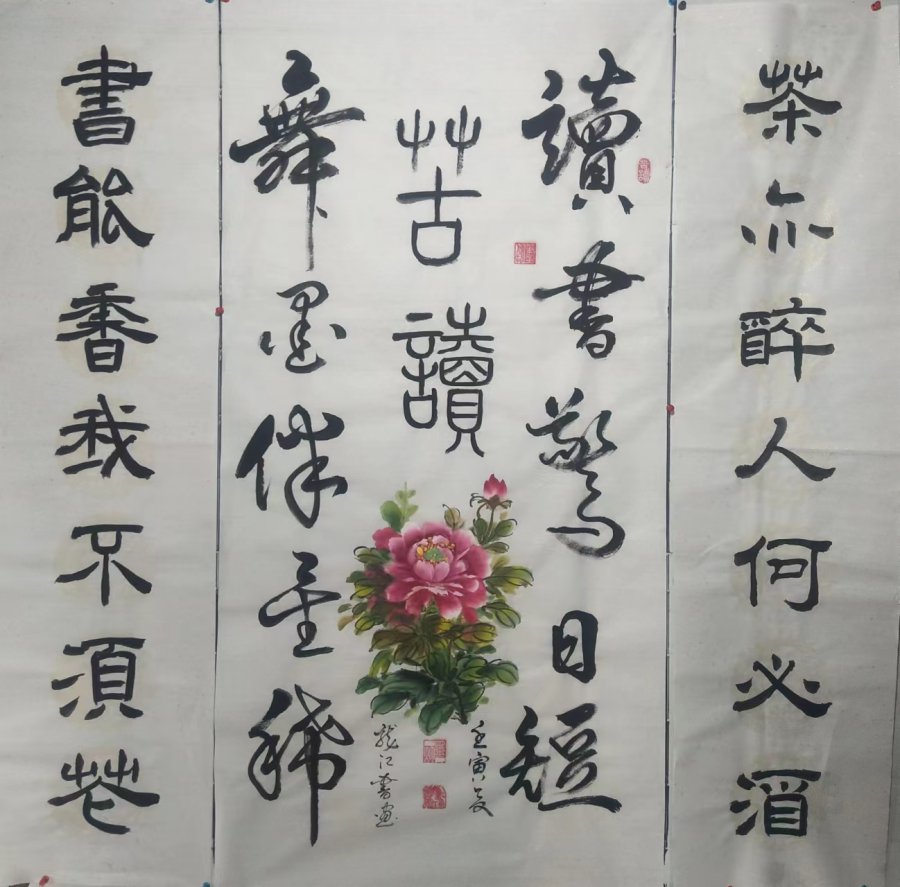 茶亦醉人何必酒
讀書驚日短
苦讀
舞墨伴星稀
壬寅夏
龍江書畫
書能香我不須花